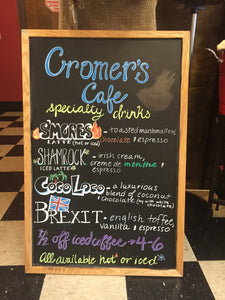 Cromer's
Cafe
specialty drinks
S'MORES - toasted marshmallow,
LATTE (hot or iced) chocolate & espresso
SHAMROCK - irish cream,
ICED LATTE creme de menthe & espresso
COCO LOCO - a luxurious
blend of coconut
& chocolate (try with white chocolate)
BREXIT - english toffee,
vanilla & espresso
1/2 off iced coffee → 4-6
All available hot or iced